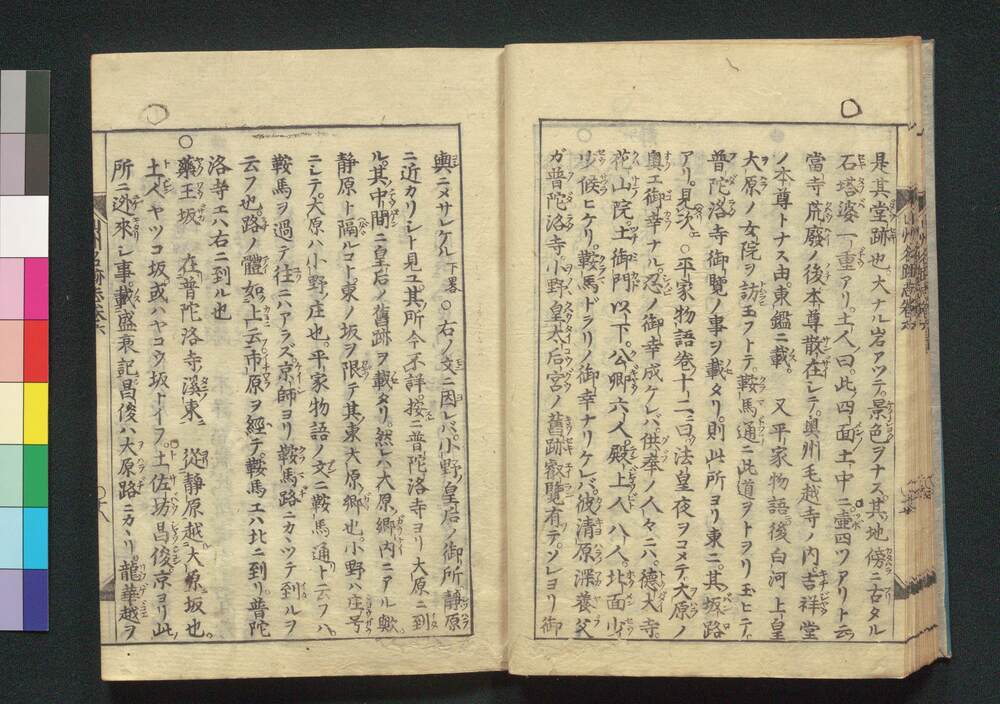 是其堂跡也大ナル岩アツテ景色ヲナス其地傍ニ古タル
石塔婆一重アリ土人曰此四面土中ニ壷四ツアリト云
當寺荒廢ノ後本尊散在シテ奥州毛越寺ノ内吉祥堂
ノ本尊トナス由東鑑ニ載 又平家物語後白河上皇
大原ノ女院ヲ訪玉フトテ鞍馬通ニ此道ヲトヲリ玉ヒテ
普陀洛寺御覽ノ事ヲ載タリ則此所ヨリ東ニ其坂路
アリ見次 ○平家物語卷十二曰法皇夜ヲコメテ大原ノ
奥エ御幸ナル忍ノ御幸成ケレバ供奉ノ人々ニハ德大寺
花山院土御門以下公卿六人殿上人八人北面少〻
候ヒケリ鞍馬ドヲリノ御幸ナリケレバ彼清原深養父
ガ普陀洛寺小野皇太后宮ノ舊跡叡覽有テソレヨリ御
輿ニメサレケル下畧○右ノ文ニ因レバ小野皇后ノ御所靜原
ニ近カリシト見ユ其所今不詳按ニ普陀洛寺ヨリ大原ニ到
ル其中間ニ皇后ノ舊跡ヲ載タリ然レハ大原郷内ニアル歟
靜原ト隔ルコト東ノ坂ヲ限テ其東大原郷也小野ハ庄号
ニシテ大原ハ小野ノ庄也平家物語ノ文ニ鞍馬通ト云フハ
鞍馬ヲ過テ往ニハアラズ京師ヨリ鞍馬路ニカヽツテ到ルヲ
云フ也路ノ體如上云市原ヲ經テ鞍馬エハ北ニ到リ普陀
洛寺エハ右ニ到ル也
○藥王坂 在普陀洛寺溪東 從靜原越大原坂也
土人ヤツコ坂或ハヤコウ坂トイフ土佐坊昌俊京ヨリ此
所ニ迯來シ事載盛衰記昌俊ハ大原路ニカヽリ龍華越ヲ